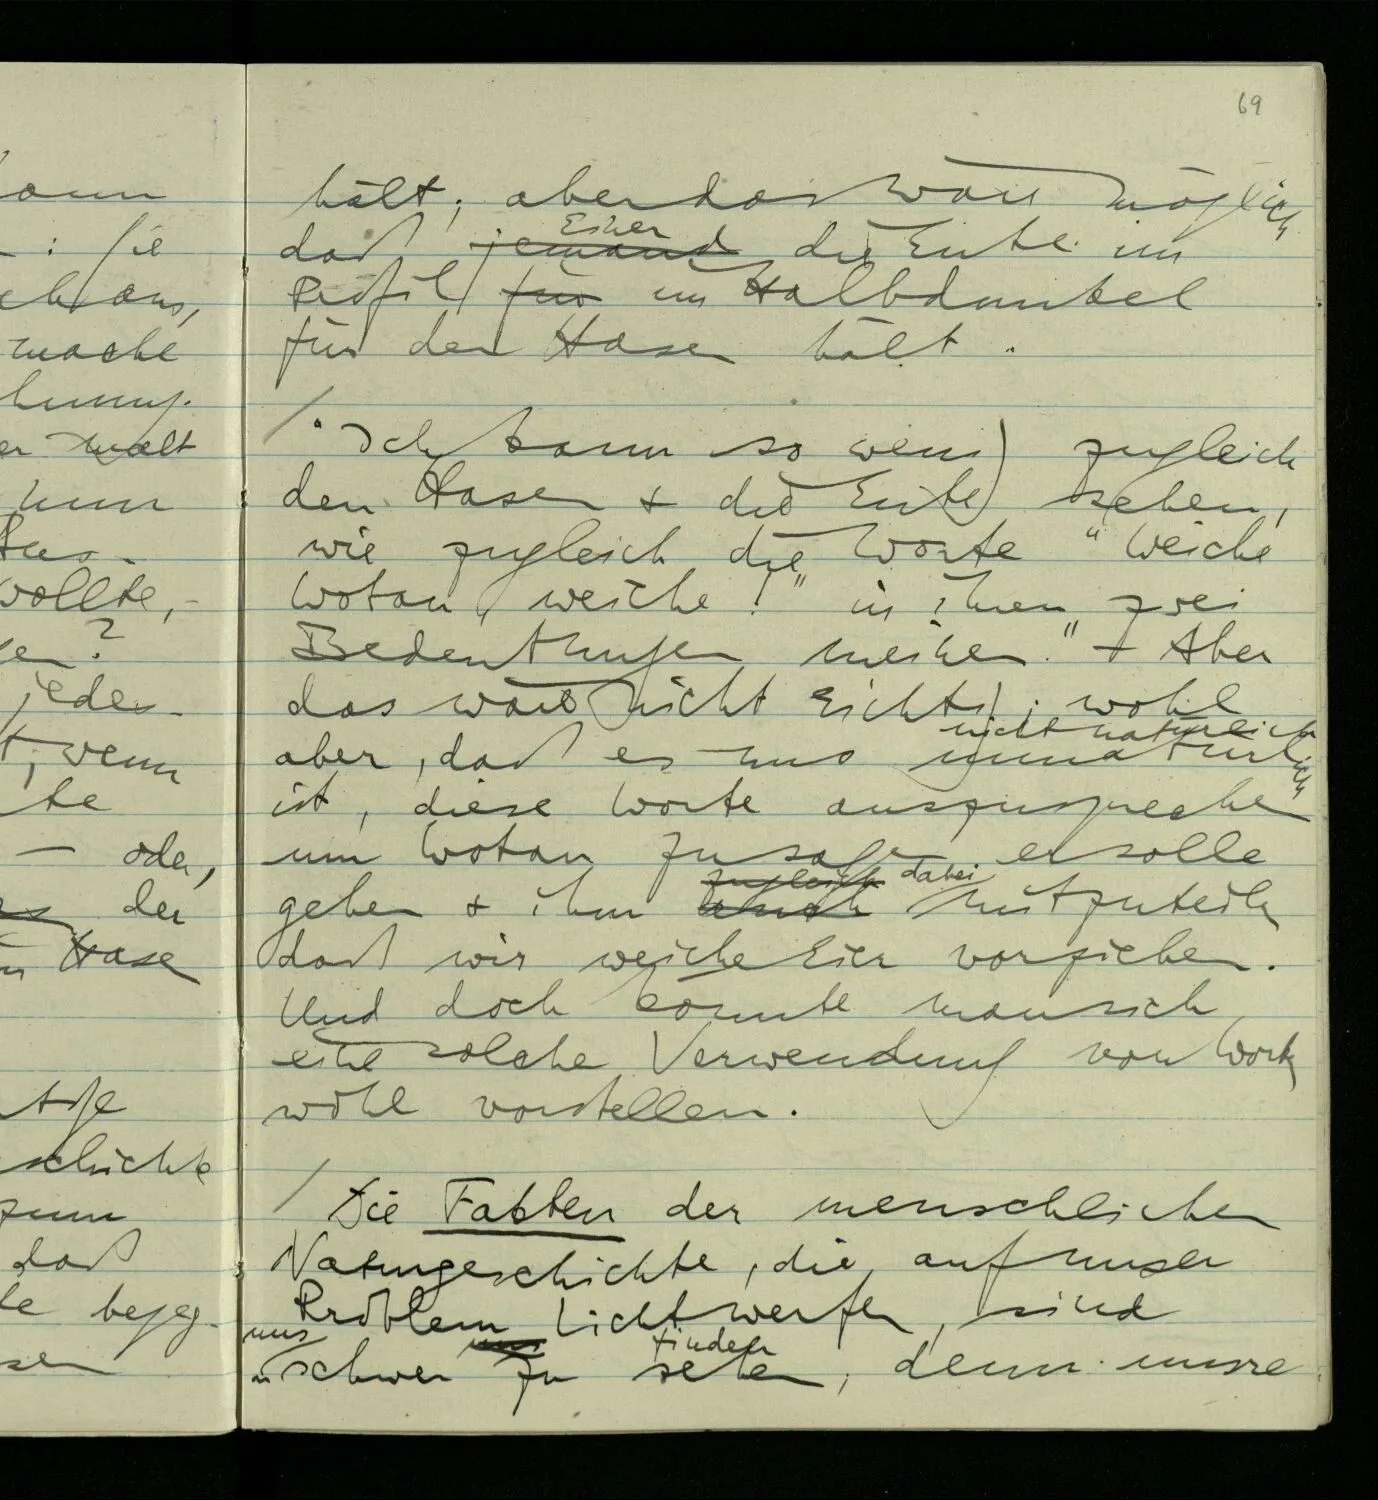 69
hält; aber das wäre möglich
daß jemand Einer die Ente im
Profil für im Halbdunkel
für den Hasen hält.
/ "Ich kann so wenig zugleich
den Hasen & die Ente sehen,
wie zugleich die Worte "Weiche
Wotan, weiche!" in ihren zwei
Bedeutungen meinen." – Aber
das wäre nicht richtig; wohl
nicht natürlich
aber, daß es uns unnatürlich
ist, diese Worte auszusprechen
um Wotan zu sagen er solle
zugleich dabei
gehen & ihm mitzuteilen
daß wir weiche Eier vorziehen.
Und doch könnte man sich
eine solche Verwendung von Worten
wohl vorstellen.
/ Die Fakten der menschlichen
Naturgeschichte, die auf unser
Problem Licht werfen, sind
uns uns finden
schwer zu sehen, denn unsre
: Sie
mache
malt
nun
wollte, –
jeder
t; wenn
te
– oder,
der
Hase
schichte
zum
daß
begeg-